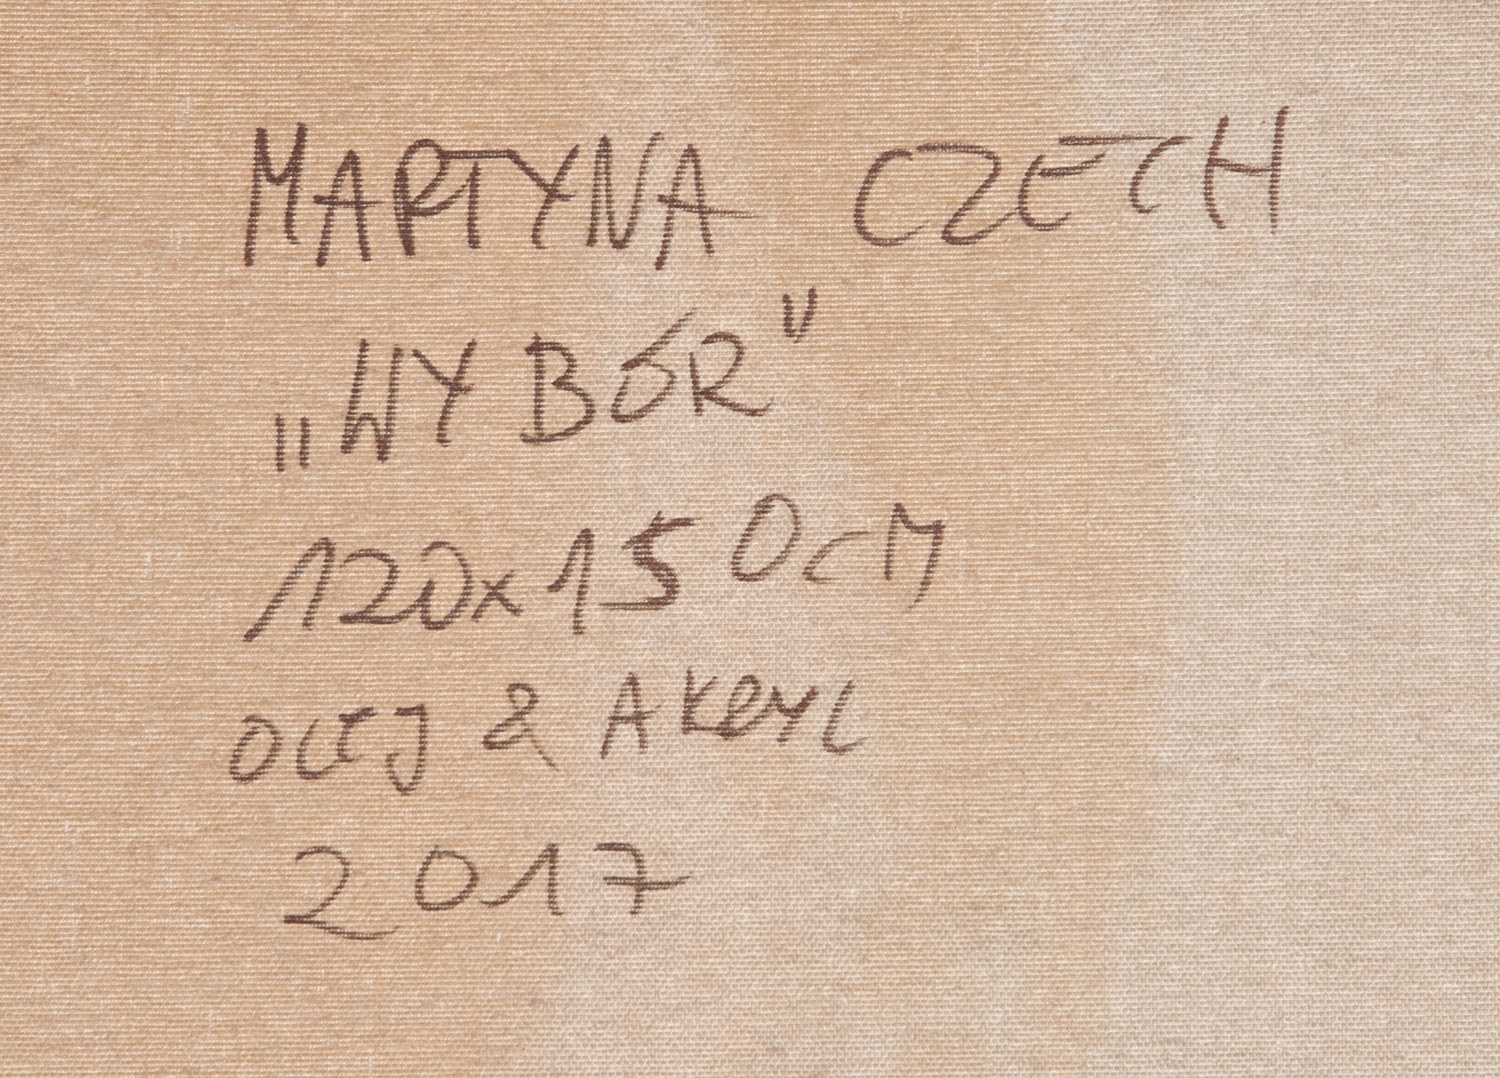 MARTYNA CZECH
„WYBÓR"
120x150cM
OLEJ & AKRYL
2017